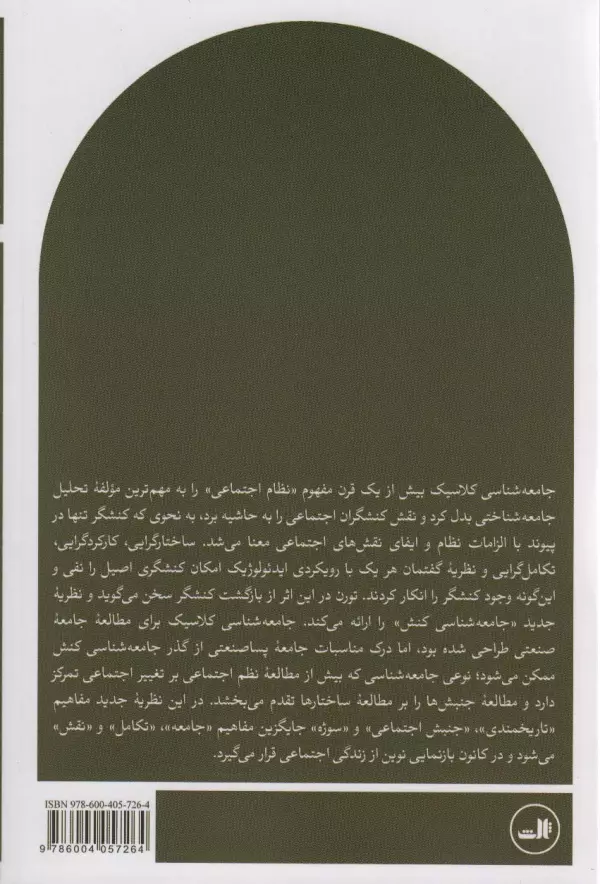 جامعه‌شناسی کلاسیک بیش از یک قرن مفهوم «نظام اجتماعی» را به مهم‌ترین مؤلفهٔ تحلیل
جامعه‌شناختی بدل کرد و نقش کنشگران اجتماعی را به حاشیه برد، به نحوی که کنشگر تنها در
پیوند با الزامات نظام و ایفای نقش‌های اجتماعی معنا می‌شد. ساختارگرایی، کارکردگرایی،
تکامل‌گرایی و نظریهٔ گفتمان هر یک با رویکردی ایدئولوژیک امکان کنشگری اصیل را نفی و
این‌گونه وجود کنشگر را انکار کردند. تورن در این اثر از بازگشت کنشگر سخن می‌گوید و نظریهٔ
جدید «جامعه‌شناسی کنش» را ارائه می‌کند. جامعه‌شناسی کلاسیک برای مطالعهٔ جامعهٔ
صنعتی طراحی شده بود، اما درک مناسبات جامعهٔ پساصنعتی از گذر جامعه‌شناسی کنش
ممکن می‌شود؛ نوعی جامعه‌شناسی که بیش از مطالعهٔ نظم اجتماعی بر تغییر اجتماعی تمرکز
دارد و مطالعهٔ جنبش‌ها را بر مطالعهٔ ساختارها تقدم می‌بخشد. در این نظریهٔ جدید مفاهیم
«تاریخمندی»، «جنبش اجتماعی» و «سوژه» جایگزین مفاهیم «جامعه»، «تکامل» و «نقش»
می‌شود و در کانون بازنمایی نوین از زندگی اجتماعی قرار می‌گیرد.
ISBN 978-600-405-726-4
9 786004 057264
ثالث